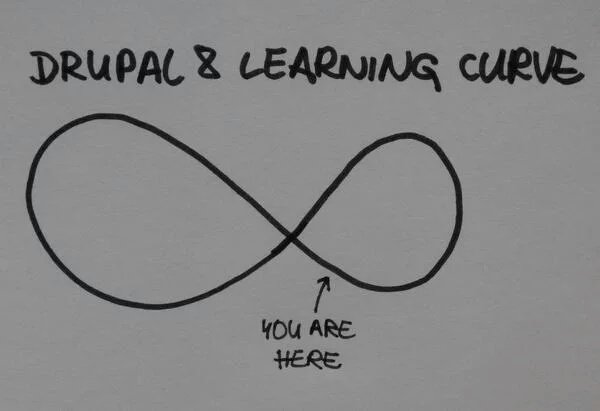 DRUPAL 8 LEARNING CURVE
YOU ARE
HERE